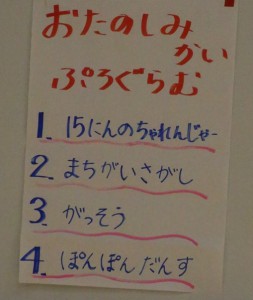 おたのしみ
かい
ぷろぐらむ
1. 15にんのちゃれんじゃー
2. まちがいさがし
3 がっそう
4. ぽんぽんだんす